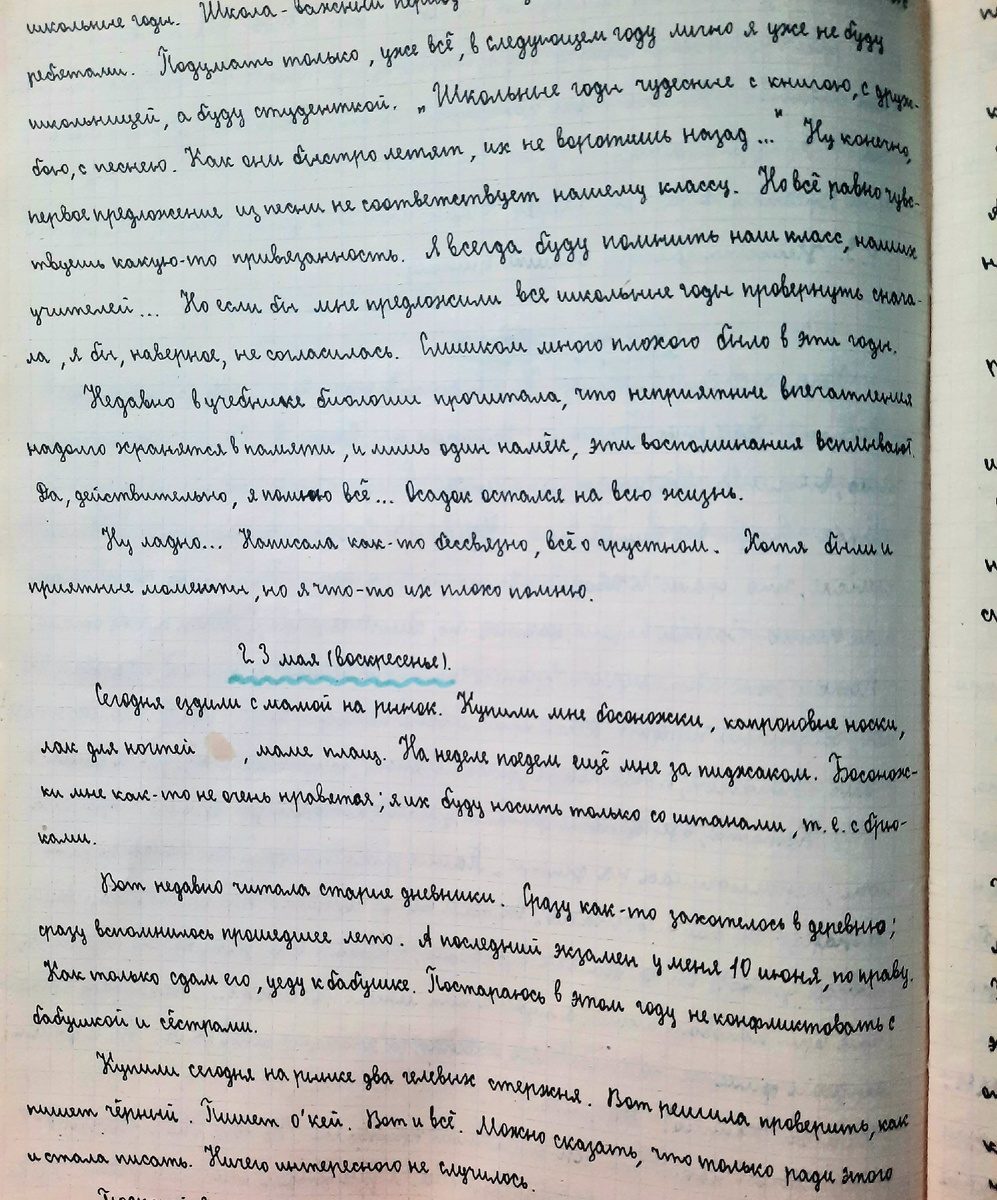 школьные годы. Школа - важный период
ребятами. Подумать только, уже всё, в следующем году лично я уже не буду
школьницей, а буду студенткой. „Школьные годы чудесные с книгою, с друж-
бою, с песнею. Как они быстро летят, их не воротишь назад..." Ну конечно,
первое предложение из песни не соответствует нашему классу. Но всё равно чувс-
твуешь какую-то привязанность. Я всегда буду помнить наш класс, наших
учителей... Но если бы мне предложили все школьные годы провернуть снача-
ла, я бы, наверное, не согласилась. Слишком много плохого было в эти годы.
Недавно в учебнике биологии прочитала, что неприятные впечатления
надолго хранятся в памяти, и лишь один намёк, эти воспоминания всплывают.
Да, действительно, я помню всё... Осадок остался на всю жизнь.
Ну ладно... Написала как-то бессвязно, всё о грустном. Хотя были и
приятные моменты, но я что-то их плохо помню.
23 мая (воскресенье).
Сегодня ездили с мамой на рынок. Купили мне босоножки, капроновые носки,
лак для ногтей , маме плащ. На неделе поедем ещё мне за пиджаком. Босонож-
ки мне как-то не очень нравятся; я их буду носить только со штанами, т.е. с брю-
ками.
Вот недавно читала старые дневники. Сразу как-то захотелось в деревню;
сразу вспомнилось прошедшее лето. А последний экзамен у меня 10 июня, по праву.
Как только сдам его, уеду к бабушке. Постараюсь в этом году не конфликтовать с
бабушкой и сёстрами.
Купили сегодня на рынке два гелевых стержня. Вот решила проверить, как
пишет чёрный. Пишет о'кей. Вот и всё. Можно сказать, что только ради этого
и стала писать. Ничего интересного не случилось.